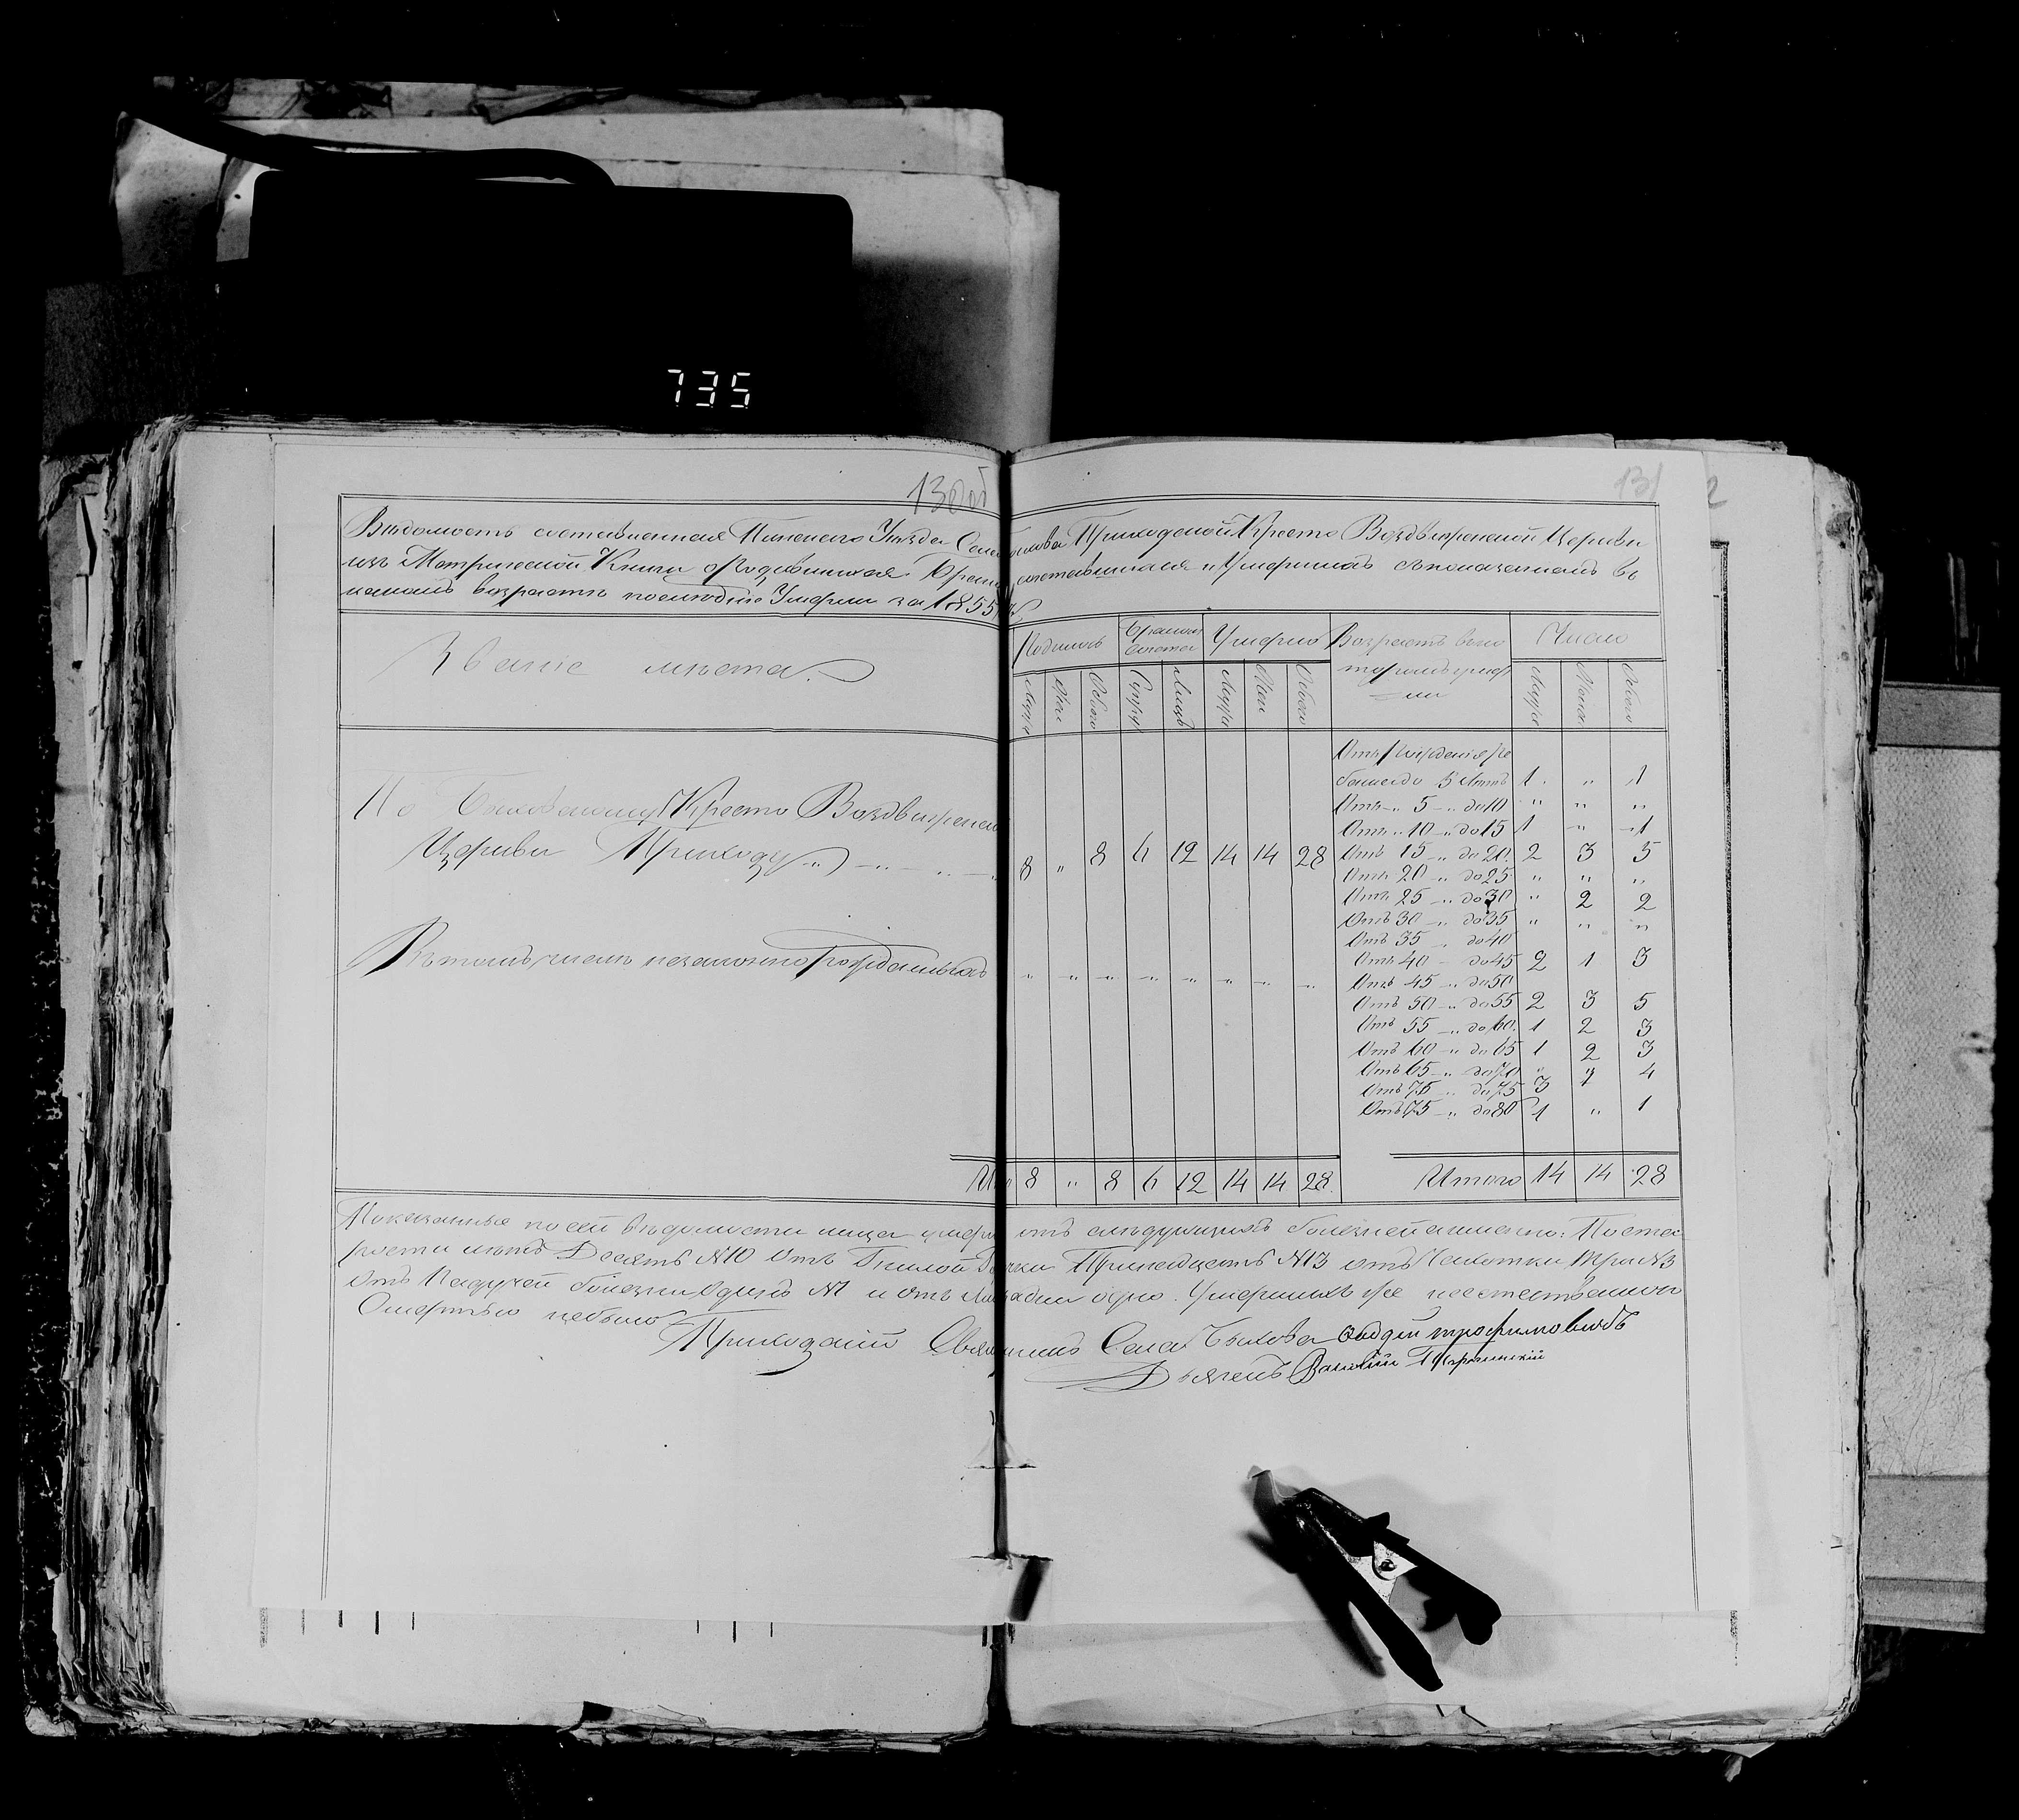 735
130об
131
2
Вѣдомость составленная Пинского Уѣзда Села Быхова Приходской Кресто Воздвиженской Церкви
изъ Метрической Книги о Родившихся Браком сочетавшихся и Умершихъ съ показаніемъ въ
какомъ возрастѣ послѣдніе Умерли за 1855
Званіе мѣста.
Родилось
Браком сочета
Умерло
Возрастъ въ ко
торомъ умер
ли
Число
Муж
Жен
Обоего
Супру
Лицъ
Муж
Жен
Обоего
Муж
Женск
Обоего
По Быховскому Кресто Воздвиженск
Церкви Приходу
8 " 8 6 12 14 14 28
Въ томъ числѣ незаконно рожденныхъ
" " " " " " " "
Отъ рожденія ре
бенка до 5 Лѣтъ 1 " 1
Отъ 5 до 10 " " "
Отъ 10 до 15 1 " 1
Отъ 15 до 20 2 3 5
Отъ 20 до 25 " " "
Отъ 25 до 30 " 2 2
Отъ 30 до 35 " " "
Отъ 35 до 40
Отъ 40 до 45 2 1 3
Отъ 45 до 50
Отъ 50 до 55 2 3 5
Отъ 55 до 60 1 2 3
Отъ 60 до 65 1 2 3
Отъ 65 до 70
Отъ 75 до 75 3 4
Отъ 75 до 80 1 " 1
8 " 8 6 12 14 14 28
Итого 14 14 28
Показанные по сей вѣдомости лица умерли отъ слѣдующихъ болезней а именно: По ста
рости лѣтъ Десять №10 Отъ Гнилой Горячки Тринадцать №13 отъ Чахотки три №3
Отъ Падучей болезни Одинъ №1 и Отъ одно. Умершихъ же неестественной
Смертью небыло
Приходскій Священникъ Села Быхова Трофимовичъ
Дьячекъ